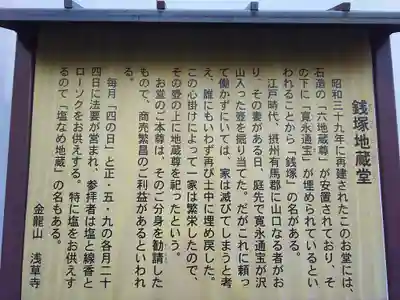 銭塚地蔵堂
昭和三十九年に再建されたこのお堂には、
石造の「六地蔵尊」が安置されており、そ
の下に「寛永通宝」が埋められているとい
われることから「銭塚」の名がある。
江戸時代、摂州有馬郡に山口なる者がお
り、その妻がある日、庭先で寛永通宝が沢
山入った壺を掘り当てた。だがこれに頼っ
て働かずにいては、家は滅びてしまうと考
え、誰にもいわず再び土中に埋め戻した。
この心掛けによって一家は繁栄したので、
その壺の上に地蔵尊を祀ったという。
お堂のご本尊は、そのご分身を勧請した
もので、商売繁昌のご利益があるといわれ
る。
毎月「四の日」と正・五・九の各月二十
四日に法要が営まれ、参拝者は塩と線香と
ローソクをお供えする。特に塩をお供えす
るので「塩なめ地蔵」の名もある。
金龍山　浅草寺